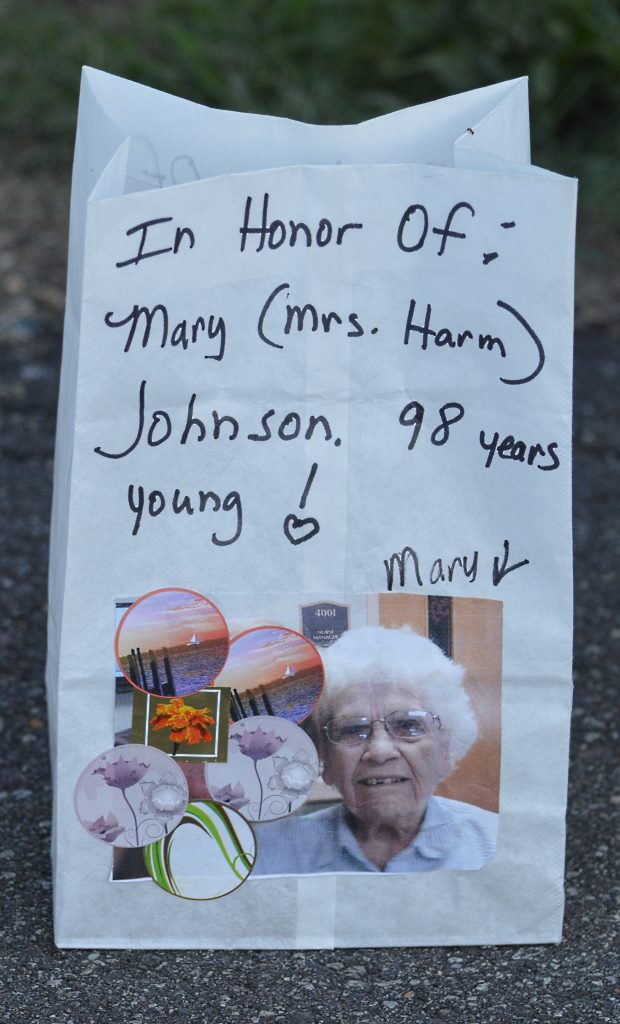 In Honor Of:
Mary (Mrs. Harm)
Johnson. 98 years
young!
Mary
4001
NURSE
MANAGER